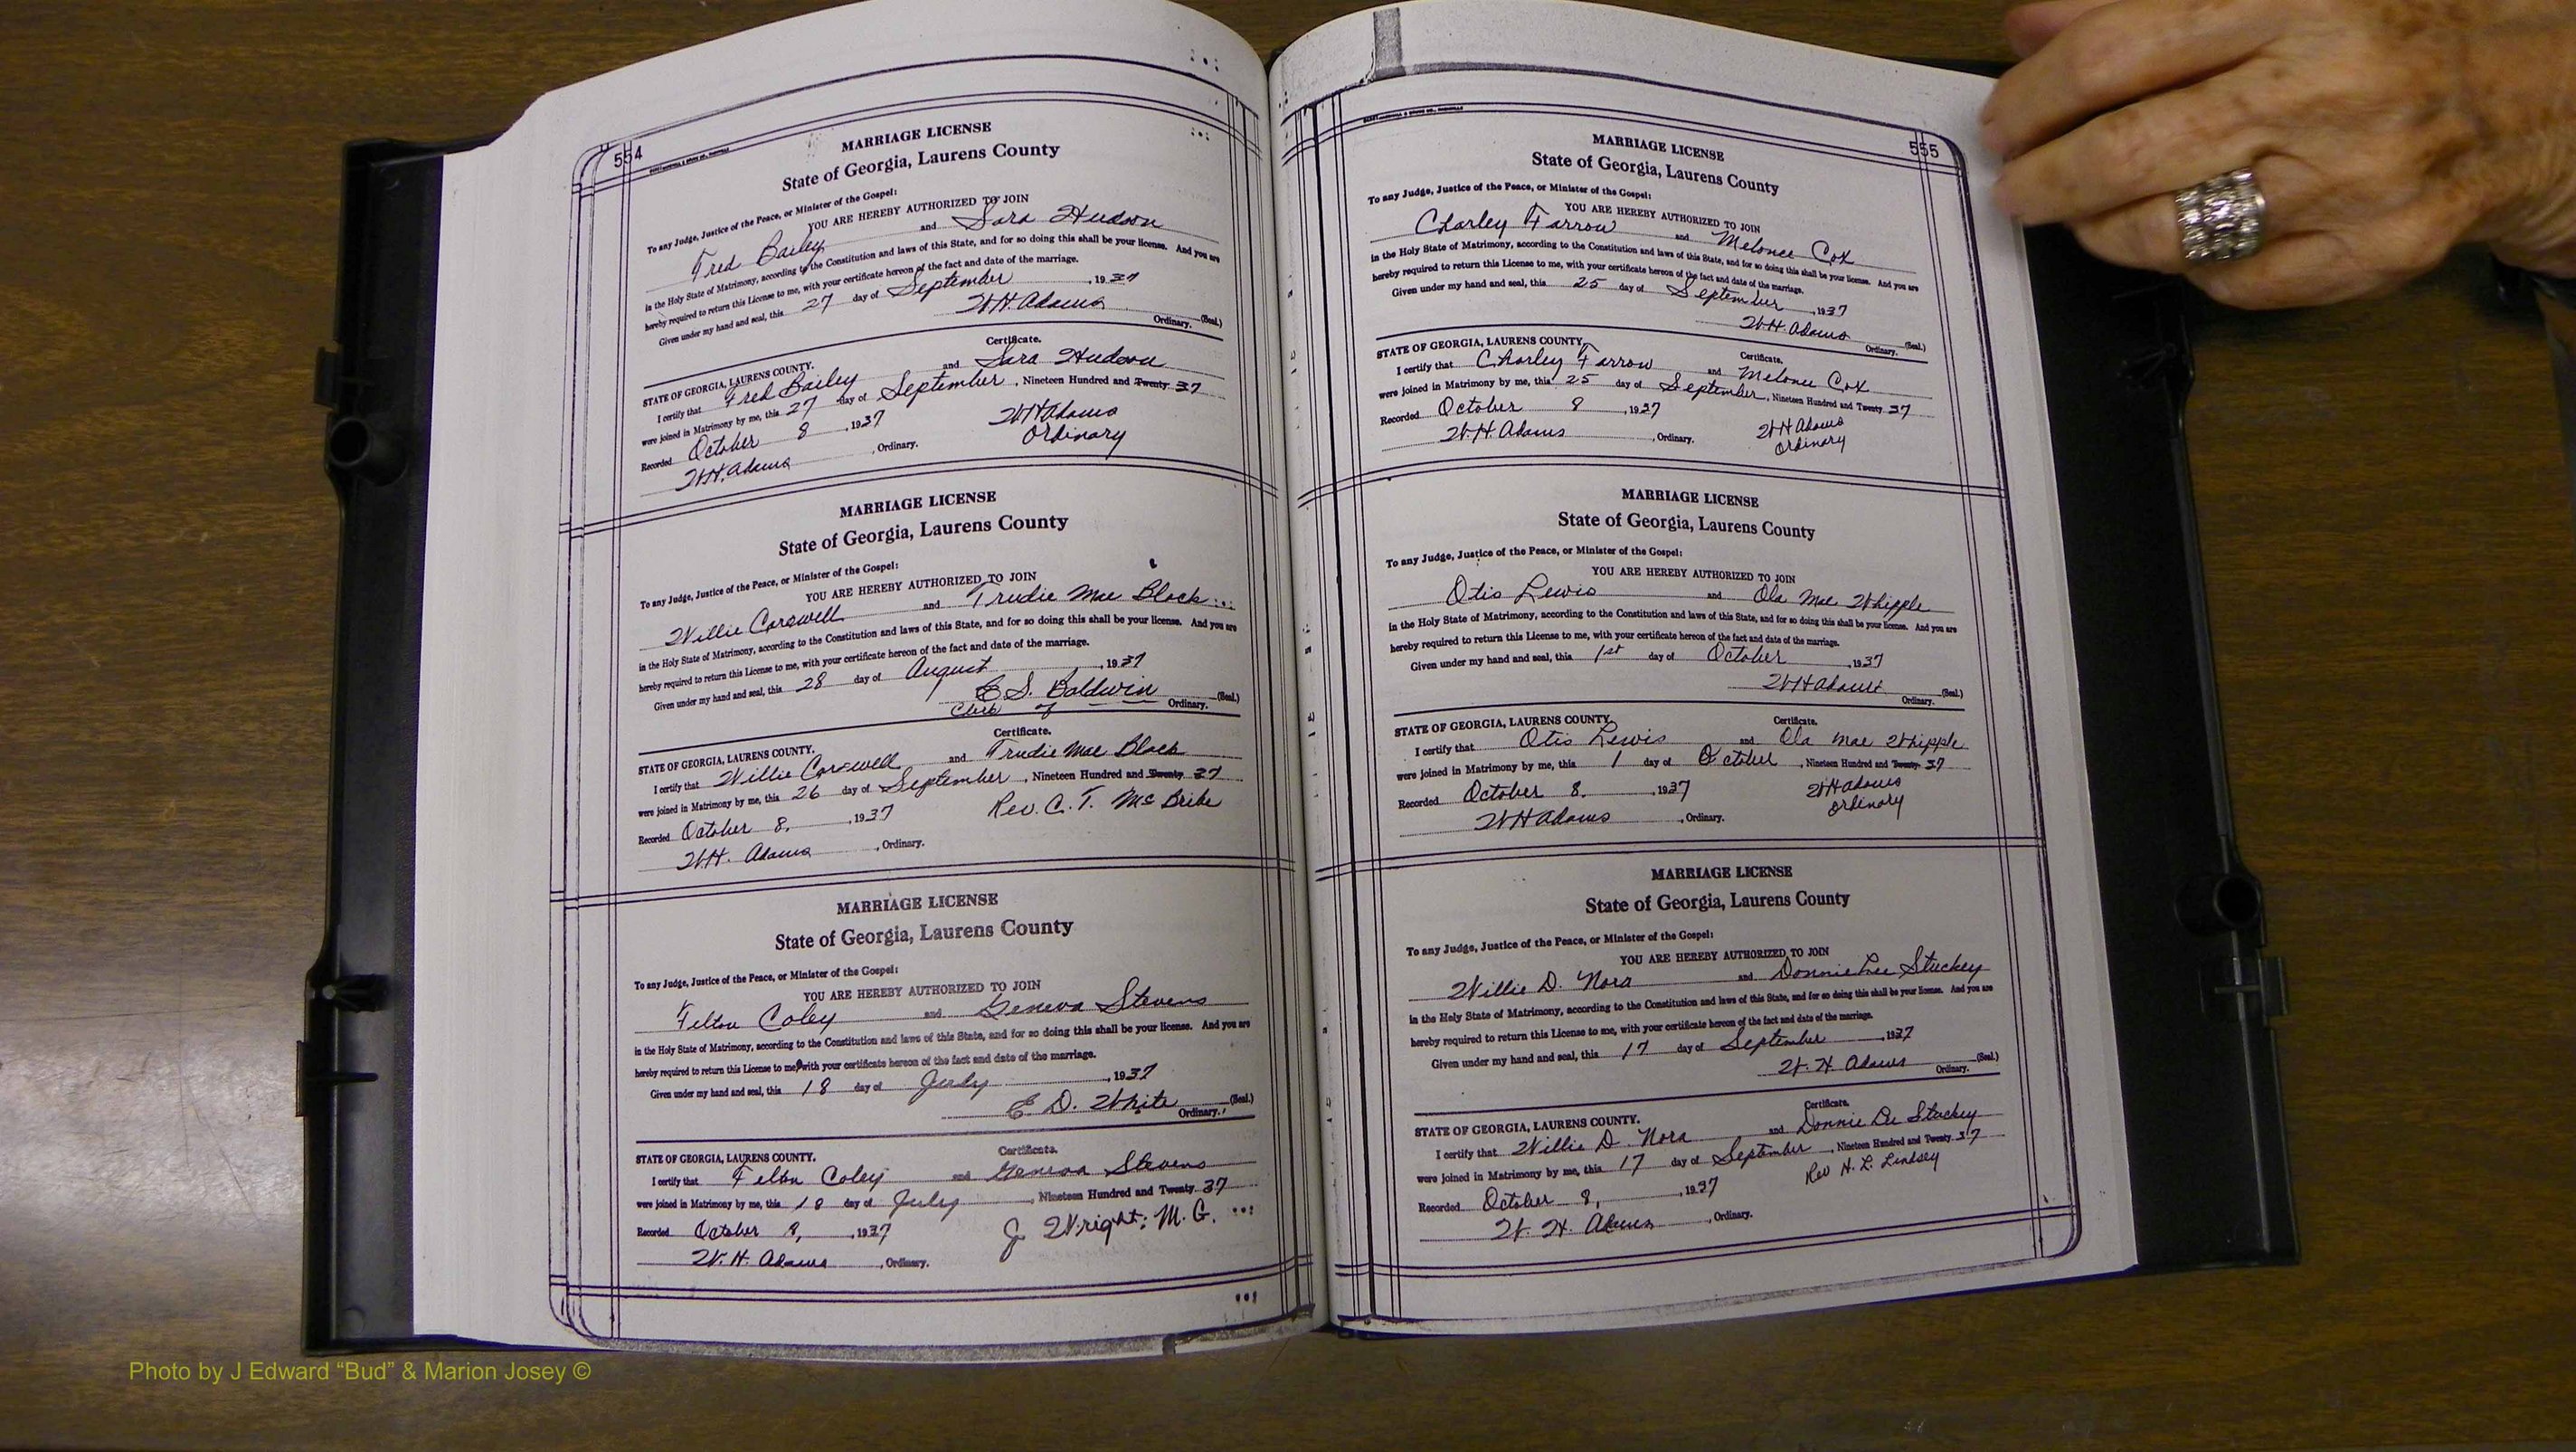 554
MARRIAGE LICENSE
State of Georgia, Laurens County
To any Judge, Justice of the Peace, or Minister of the Gospel:
YOU ARE HEREBY AUTHORIZED TO JOIN
Fred Bailey and Sara Hudson
in the Holy State of Matrimony, according to the Constitution and laws of this State, and for so doing this shall be your license. And you are
hereby required to return this License to me, with your certificate hereon of the fact and date of the marriage.
Given under my hand and seal, this 27 day of September, 1937
W.H. Adams (Seal.)
Ordinary.
Certificate.
STATE OF GEORGIA, LAURENS COUNTY.
I certify that Fred Bailey and Sara Hudson
were joined in Matrimony by me, this 27 day of September, Nineteen Hundred and Twenty 37
Recorded October 8, 1937 W H Adams
W.H. Adams, Ordinary. Ordinary
MARRIAGE LICENSE
State of Georgia, Laurens County
To any Judge, Justice of the Peace, or Minister of the Gospel:
YOU ARE HEREBY AUTHORIZED TO JOIN
Willie Carswell and Trudie Mae Black
in the Holy State of Matrimony, according to the Constitution and laws of this State, and for so doing this shall be your license. And you are
hereby required to return this License to me, with your certificate hereon of the fact and date of the marriage.
Given under my hand and seal, this 28 day of August, 1937
E. S. Baldwin (Seal.)
Clerk of Ordinary.
Certificate.
STATE OF GEORGIA, LAURENS COUNTY.
I certify that Willie Carswell and Trudie Mae Black
were joined in Matrimony by me, this 26 day of September, Nineteen Hundred and Twenty 37
Recorded October 8, 1937 Rev. C. T. McBride
W.H. Adams, Ordinary.
MARRIAGE LICENSE
State of Georgia, Laurens County
To any Judge, Justice of the Peace, or Minister of the Gospel:
YOU ARE HEREBY AUTHORIZED TO JOIN
Felton Coley and Geneva Stevens
in the Holy State of Matrimony, according to the Constitution and laws of this State, and for so doing this shall be your license. And you are
hereby required to return this License to me, with your certificate hereon of the fact and date of the marriage.
Given under my hand and seal, this 18 day of July, 1937
E. D. White (Seal.)
Ordinary.
Certificate.
STATE OF GEORGIA, LAURENS COUNTY.
I certify that Felton Coley and Geneva Stevens
were joined in Matrimony by me, this 18 day of July, Nineteen Hundred and Twenty 37
Recorded October 8, 1937 J Wright; M. G.
W. H. Adams, Ordinary.
555
MARRIAGE LICENSE
State of Georgia, Laurens County
To any Judge, Justice of the Peace, or Minister of the Gospel:
YOU ARE HEREBY AUTHORIZED TO JOIN
Charley Farrow and Melonee Cox
in the Holy State of Matrimony, according to the Constitution and laws of this State, and for so doing this shall be your license. And you are
hereby required to return this License to me, with your certificate hereon of the fact and date of the marriage.
Given under my hand and seal, this 25 day of September, 1937
W.H. Adams (Seal.)
Ordinary.
Certificate.
STATE OF GEORGIA, LAURENS COUNTY.
I certify that Charley Farrow and Melonee Cox
were joined in Matrimony by me, this 25 day of September, Nineteen Hundred and Twenty 37
Recorded October 8, 1937 W H Adams
W. H. Adams, Ordinary. Ordinary
MARRIAGE LICENSE
State of Georgia, Laurens County
To any Judge, Justice of the Peace, or Minister of the Gospel:
YOU ARE HEREBY AUTHORIZED TO JOIN
Otis Lewis and Ola Mae Whipple
in the Holy State of Matrimony, according to the Constitution and laws of this State, and for so doing this shall be your license. And you are
hereby required to return this License to me, with your certificate hereon of the fact and date of the marriage.
Given under my hand and seal, this 1st day of October, 1937
W H Adams (Seal.)
Ordinary.
Certificate.
STATE OF GEORGIA, LAURENS COUNTY.
I certify that Otis Lewis and Ola Mae Whipple
were joined in Matrimony by me, this 1 day of October, Nineteen Hundred and Twenty 37
Recorded October 8, 1937 W H Adams
W H Adams, Ordinary. Ordinary
MARRIAGE LICENSE
State of Georgia, Laurens County
To any Judge, Justice of the Peace, or Minister of the Gospel:
YOU ARE HEREBY AUTHORIZED TO JOIN
Willie D. Nora and Donnie Lee Stuckey
in the Holy State of Matrimony, according to the Constitution and laws of this State, and for so doing this shall be your license. And you are
hereby required to return this License to me, with your certificate hereon of the fact and date of the marriage.
Given under my hand and seal, this 17 day of September, 1937
W. H. Adams (Seal.)
Ordinary.
Certificate.
STATE OF GEORGIA, LAURENS COUNTY.
I certify that Willie D. Nora and Donnie Lee Stuckey
were joined in Matrimony by me, this 17 day of September, Nineteen Hundred and Twenty 37
Recorded October 8, 1937 Rev H. L. Lindsey
W. H. Adams, Ordinary.
Photo by J Edward “Bud” & Marion Josey ©